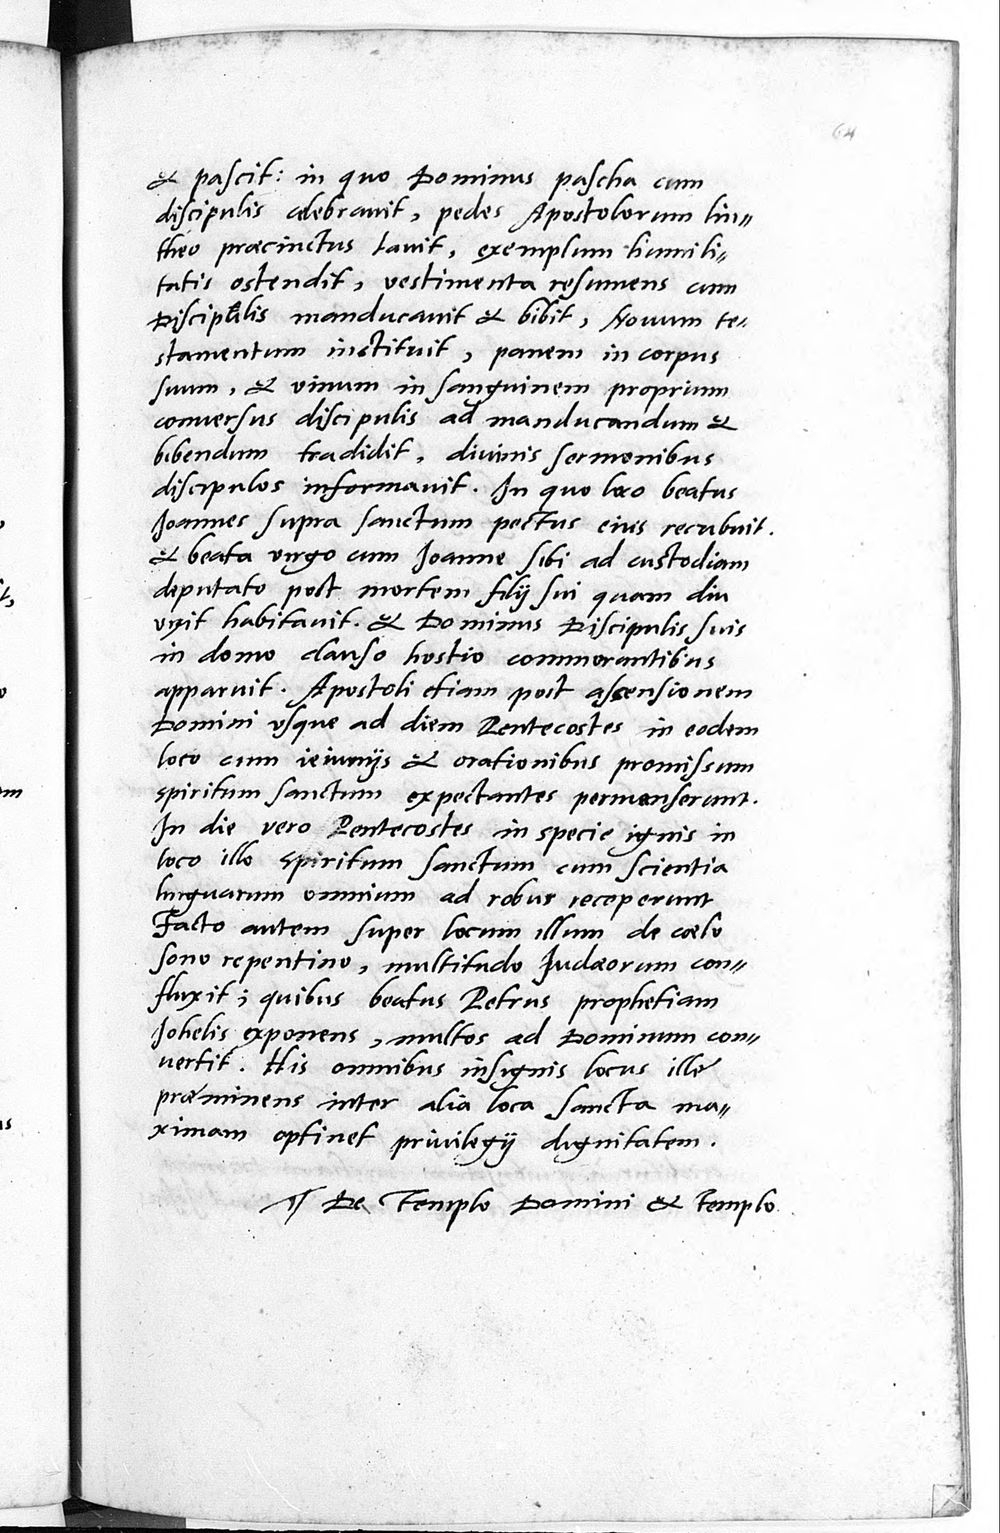 64
& pascit: in quo Dominus pascha cum
discipulis celebrauit, pedes Apostolorum lin=
theo præcinctus lauit, exemplum humili=
tatis ostendit, vestimenta resumens cum
Discipulis manducauit & bibit, Nouum te=
stamentum instituit, panem in corpus
suum, & vinum in sanguinem proprium
conuersus discipulis ad manducandum &
bibendum tradidit, diuinis sermonibus
discipulos informauit. In quo loco beatus
Joannes supra sanctum pectus eius recubuit.
& beata virgo cum Joanne sibi ad custodiam
deputato post mortem filij sui quam diu
vixit habitauit. & Dominus Discipulis suis
in domo clauso hostio commorantibus
apparuit. Apostoli etiam post assensionem
Domini vsque ad diem Pentecostes in eodem
loco cum ieiunijs & orationibus promissum
spiritum sanctum expectantes permanserunt.
In die vero Pentecostes in specie ignis in
loco illo spiritum sanctum cum scientia
linguarum omnium ad robur receperunt
Facto autem super locum illum de cœlo
sono repentino, multitudo Judæorum con=
fluxit; quibus beatus Petrus prophetiam
Johelis exponens, multos ad Dominum con=
uertit. His omnibus insignis locus ille
præminens inter alia loca sancta ma=
ximam optinet priuilegij dignitatem.
¶ De Templo Domini & Templo